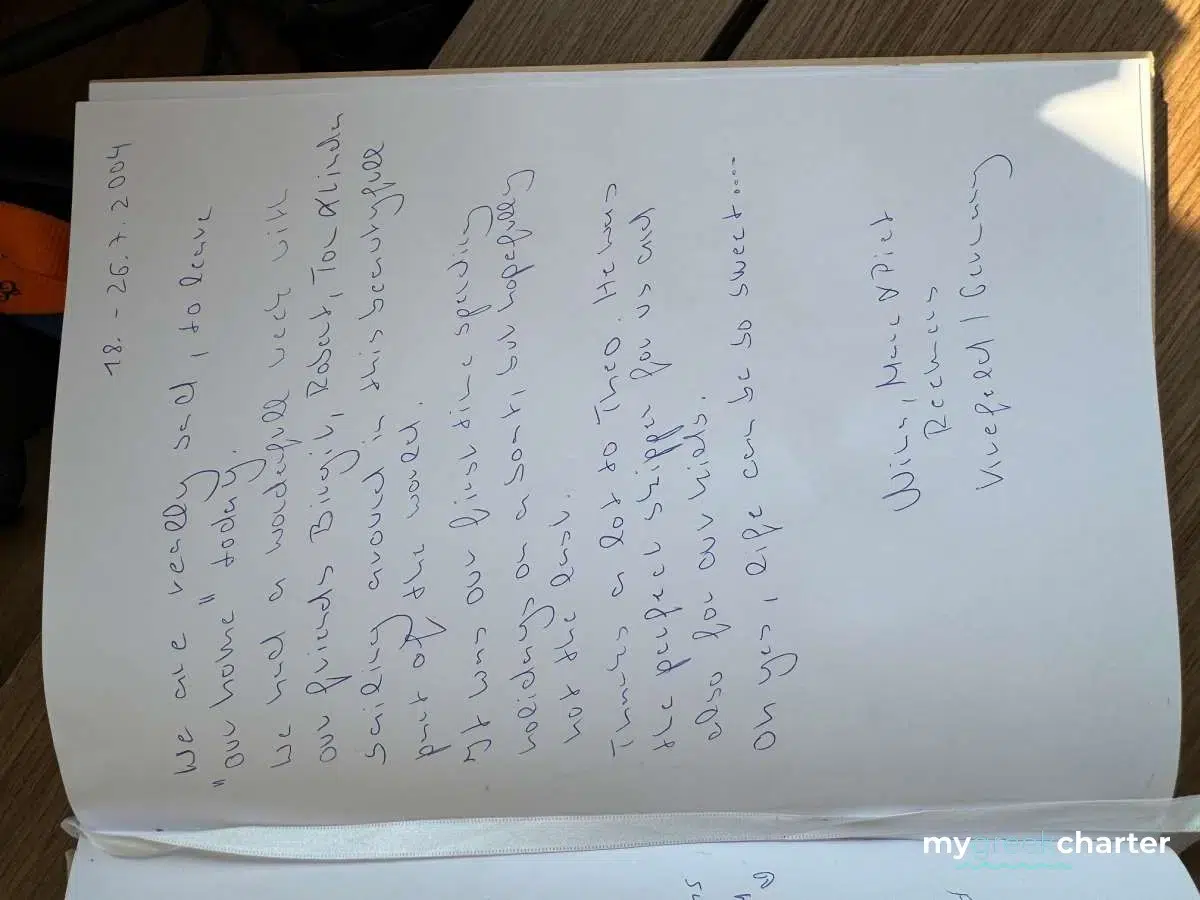 18. - 26.7.2004
We are really sad, to leave
"our home" today.
We had a wonderfull week with
our friends Birgit, Robert, Tom & Linda
sailing around in this beautyfull
part of the world.
It was our first time spending
holidays on a boat, but hopefully
not the last.
Thanks a lot to Theo. He was
the perfect skipper for us and
also for our kids.
Oh yes, life can be so sweet....
& Piet
/ Germany
mygreekcharter